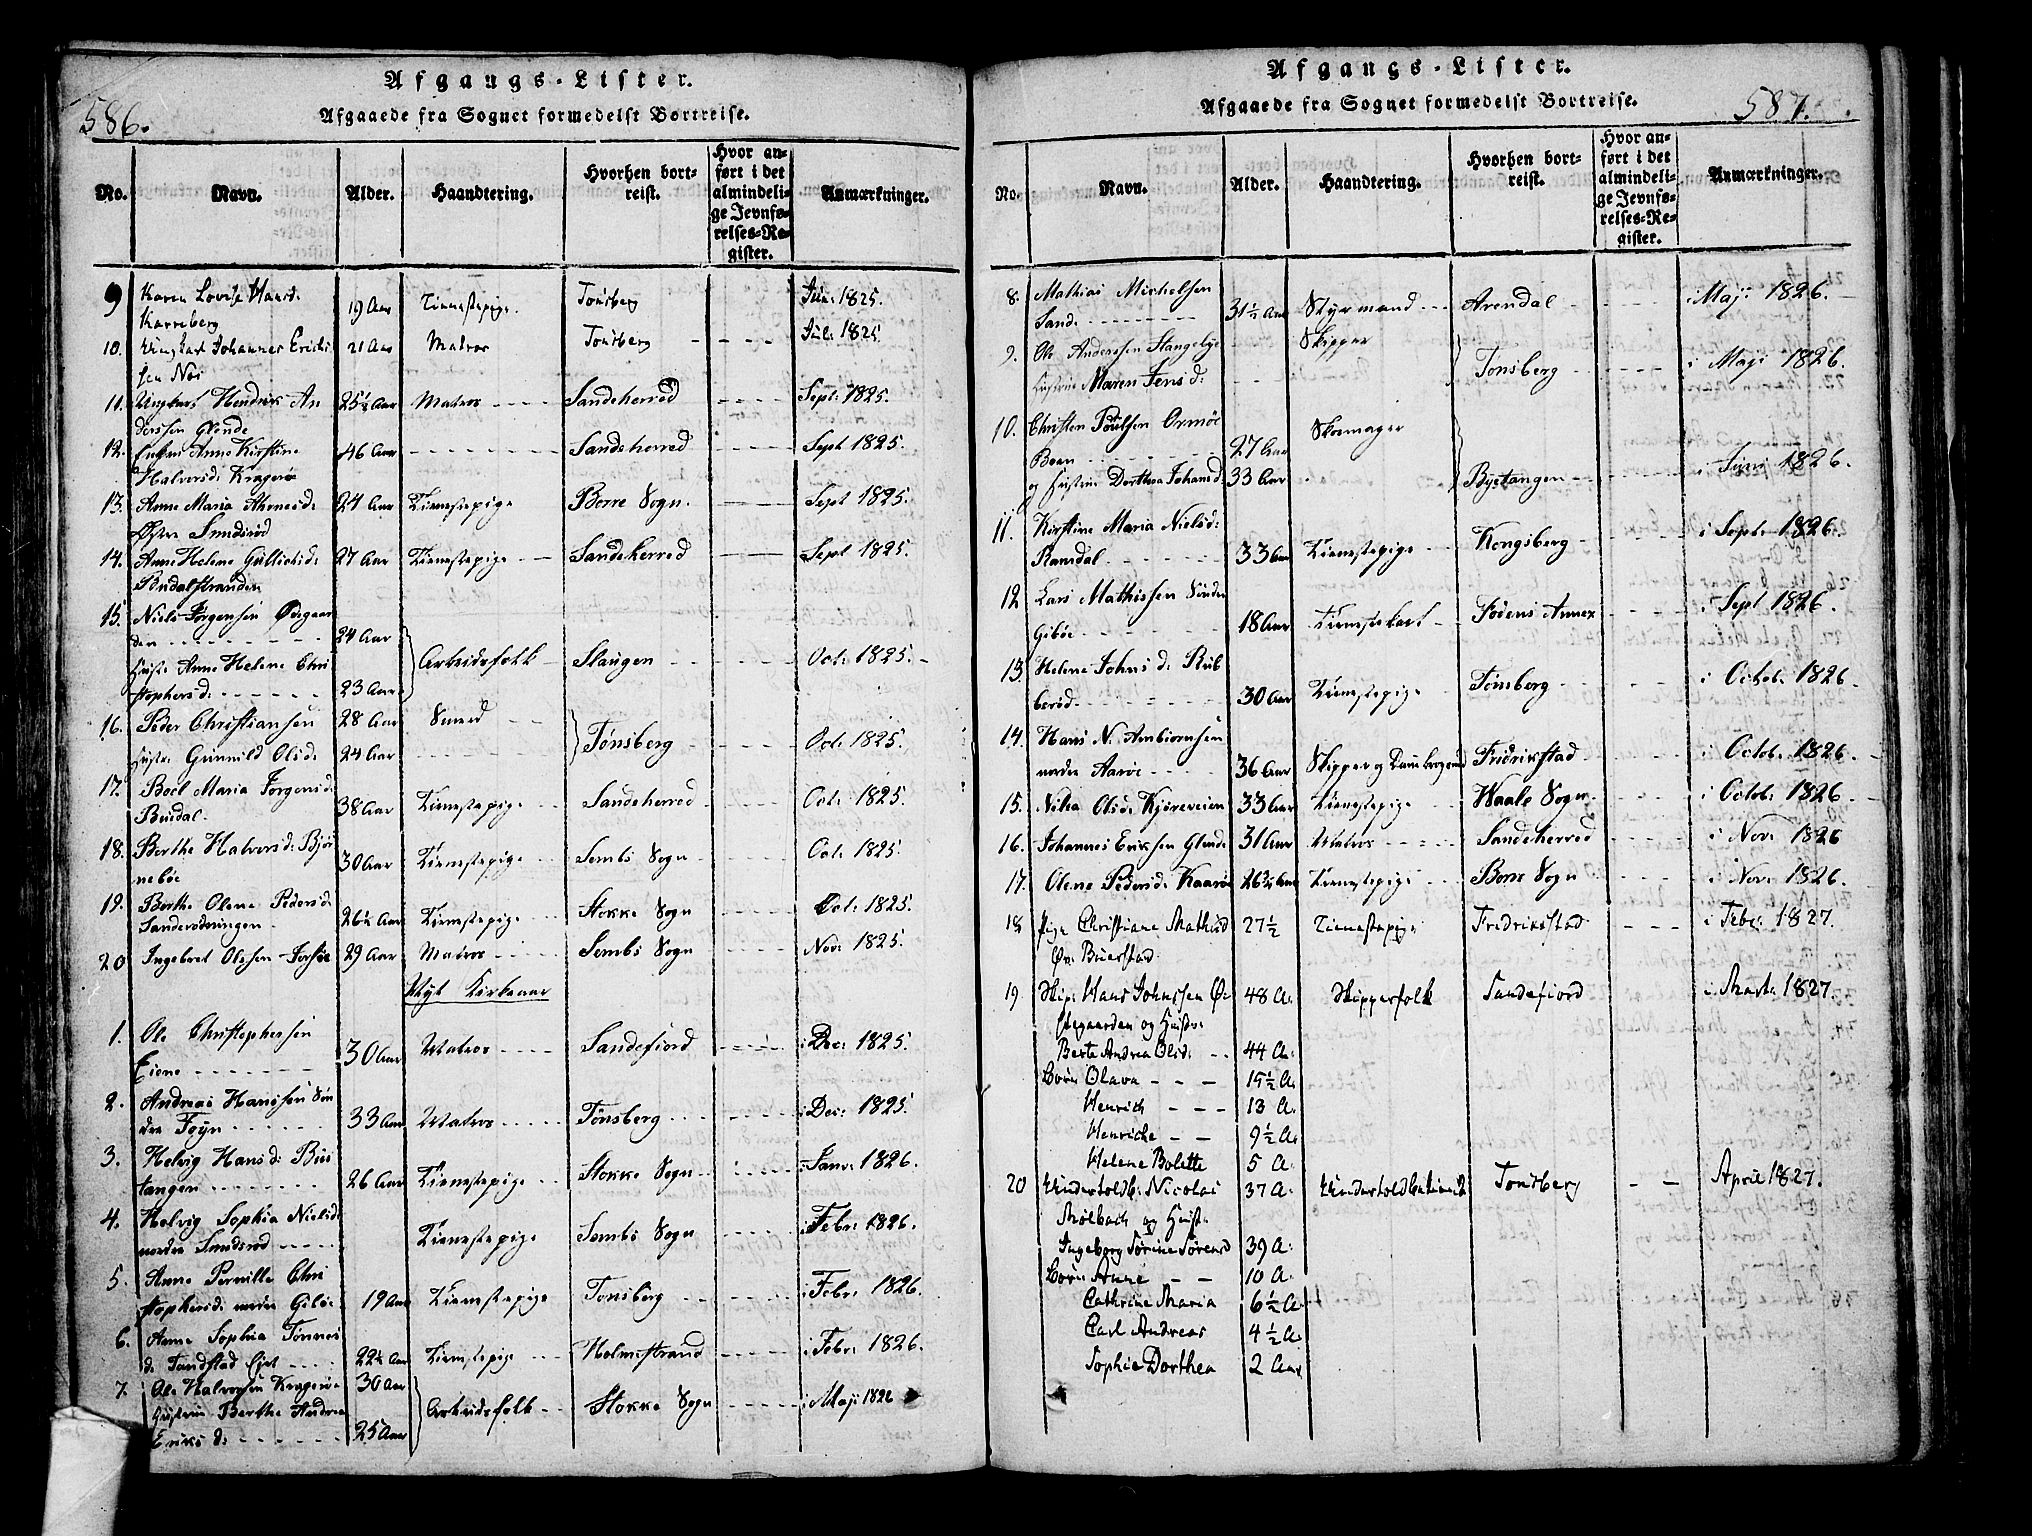 586.
Afgangs-Lister.
Afgaaede fra Sognet formedelst Bortreise.
No. Navn. Alder. Haandtering. Hvorhen bortreist. Hvor anført i det almindelige Jevnførelses-Register. Anmærkninger.
9 Karen Lovise Hansd: 19 Aar Tienestepige. Tønsberg Jun: 1825.
Karreberg
10. Ungkarl Johannes Erich- 21 Aar Matros Tønsberg Jul: 1825
sen Nes
11. Ungkarl Hendrik An 25½ Aar Matros Sandeherred Sept: 1825.
derssen Glende
12. Enken Anne Kirstine 46 Aar Sandeherred Sept 1825.
Halvorsd: Kragerø
13. Anne Maria Ahrnesd: 24 Aar Tienestepige Borre Sogn. Sept 1825.
Østre Smidsrød
14. Anne Helene Gullichsd: 27 Aar Tienestepige Sandeherred Sept 1825.
Budalstranden
15. Niels Jørgensen Ødegaar 24 Aar
den
Hustr: Anne Helene Chri Arbeidsfolk Slaugen Oct: 1825.
stophersd: 23 Aar
16. Peder Christiansen 28 Aar Smed
Hustr: Gunnild Olsd: 24 Aar Tønsberg Oct: 1825.
17. Boel Maria Jørgensd: 38 Aar Tienestepige Sandeherred Oct: 1825.
Buedal.
18. Berthe Halvorsd: Bjør 30 Aar Tienestepige Sembs Sogn Oct: 1825.
nebøe
19. Berthe Olene Pedersd: 26½ Aar Tienestepige Stokke Sogn Oct: 1825.
Sanderødningen.
20 Ingebret Olssen 29 Aar Matros Sembs Sogn Nov: 1825.
Nyt Kirkeaar
1. Ole Christophersen
Eiene 30 Aar Matros Sandefiord i Dec: 1825.
2. Andreas Hanssen Søn
dre Føyn 33 Aar Matros Tønsberg i Dec: 1825.
3. Helvig Hansd: Bus
tangen 26 Aar Tienestepige Stokke Sogn i Janr: 1826.
4. Helvig Sophia Nielsd:
nordre Smidsrød Tienestepige Sembs Sogn i Febr: 1826.
5. Anne Pernille Chri
stophersd: nordre Gibøe 19 Aar Tienestepige Tønsberg i Febr: 1826.
6. Anne Sophia Tønnes
d: Tandstad 22½ Aar Tienestepige Holmestrand i Febr: 1826.
7. Ole Halvorsen Kragerøe 30 Aar
Hustrue Berthe Andrea Arbeidsfolk Stokke Sogn i Maji 1826
Eriksd: 25 Aar
587.
Afgangs-Lister.
Afgaaede fra Sognet formedelst Bortreise.
No. Navn. Alder. Haandtering. Hvorhen bortreist. Hvor anført i det almindelige Jevnførelses-Register. Anmærkninger.
8. Mathias Michelsen
Sande 31½ Aar Styrmand Arendal i Maji 1826.
9. Ole Anderssen Stangebye Skipper
Hustrue Maren Jensd: Tønsberg i Maji 1826.
10. Christen Poulsen Ormøe Skomager
Boen 27 Aar
og Hustrue Dorthea Johansd: 33 Aar Byetangen i Juni 1826.
11. Kirstine Maria Nielsd:
Ramdal 33 Aar Tienestepige Kongsberg i Sept: 1826.
12 Lars Mathissen Søndre
Gibøe 18 Aar Tienestekarl Føiens Annex i Sept 1826.
13. Helene Johnsd: Rub
berød 30 Aar Tienestepige Tønsberg i Octob: 1826
14. Hans N. Ambiornsen
nordre Aarøe 36 Aar Skipper og Fridrikstad i Octob: 1826.
15. Nilia Olsd: Kjøreveien 33 Aar Tienestepige Waale Sogn i Octob: 1826
16. Johannes Eriksen Glende 31 Aar Matros Sandeherred i Nov: 1826
17. Olene Pedersd: Kaarøe 26¾ Aar Tienestepige Borre Sogn i Nov: 1826.
18 Pige Christiane Mathisd 27½ Tienestepige Fredrikstad i Febr: 1827.
Ør: Buerstad
19 Skip: Hans Johnssen Ø- 48 A: Skipperfolk Sandefiord i Marts 1827.
degaarden og Hustr:
Berte Andrea Olsd: 44 A:
Børn Olava 15½ A.
Henrich 13 A:
Henriche 9½ A:
Helene Bolette 5 A:
20 Underfoldb: Nicolai 37 A: Tønsberg April 1827.
Mølbach og Hustr:
Ingeborg Sørine Sørensd 39 A:
Børn Anne 10 A:
Cathrine Maria 6½ A:
Carl Andreas 4½ A:
Sophie Dorthea 2 Aar